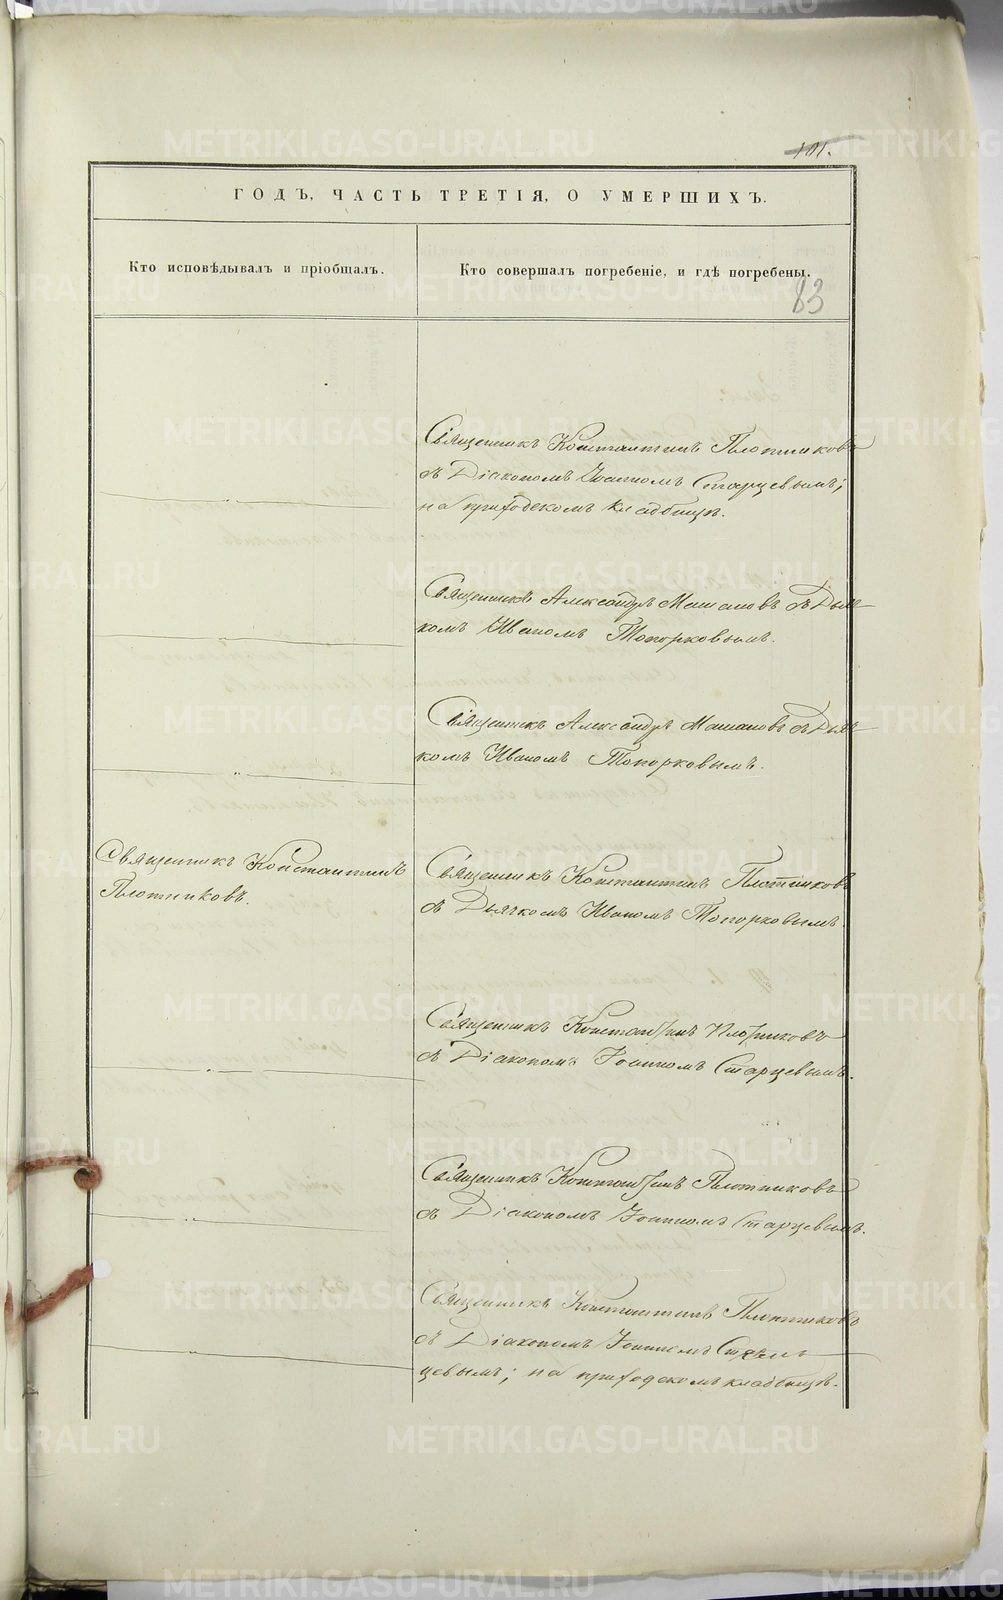 101.
ГОДЪ, ЧАСТЬ ТРЕТІЯ, О УМЕРШИХЪ.
Кто исповѣдывалъ и пріобщалъ.
Кто совершалъ погребеніе, и гдѣ погребены.
83
Священникъ Константинъ Плотниковъ
съ Діакономъ Іоанномъ Старцевымъ;
на приходскомъ кладбищѣ.
Священникъ Александръ Машановъ съ Дьяч-
комъ Иваномъ Топорковымъ.
Священникъ Александръ Машановъ съ Дьяч-
комъ Иваномъ Топорковымъ.
Священникъ Константинъ
Плотниковъ.
Священникъ Константинъ Плотниковъ
съ Дьячкомъ Иваномъ Топорковымъ.
Священникъ Константинъ Плотниковъ
съ Діакономъ Іоанномъ Старцевымъ.
Священникъ Константинъ Плотниковъ
съ Діакономъ Іоанномъ Старцевымъ.
Священникъ Константинъ Плотниковъ
съ Діакономъ Іоанномъ
цевымъ; на приходскомъ кладбищѣ.
METRIKI.GASO-URAL.RU